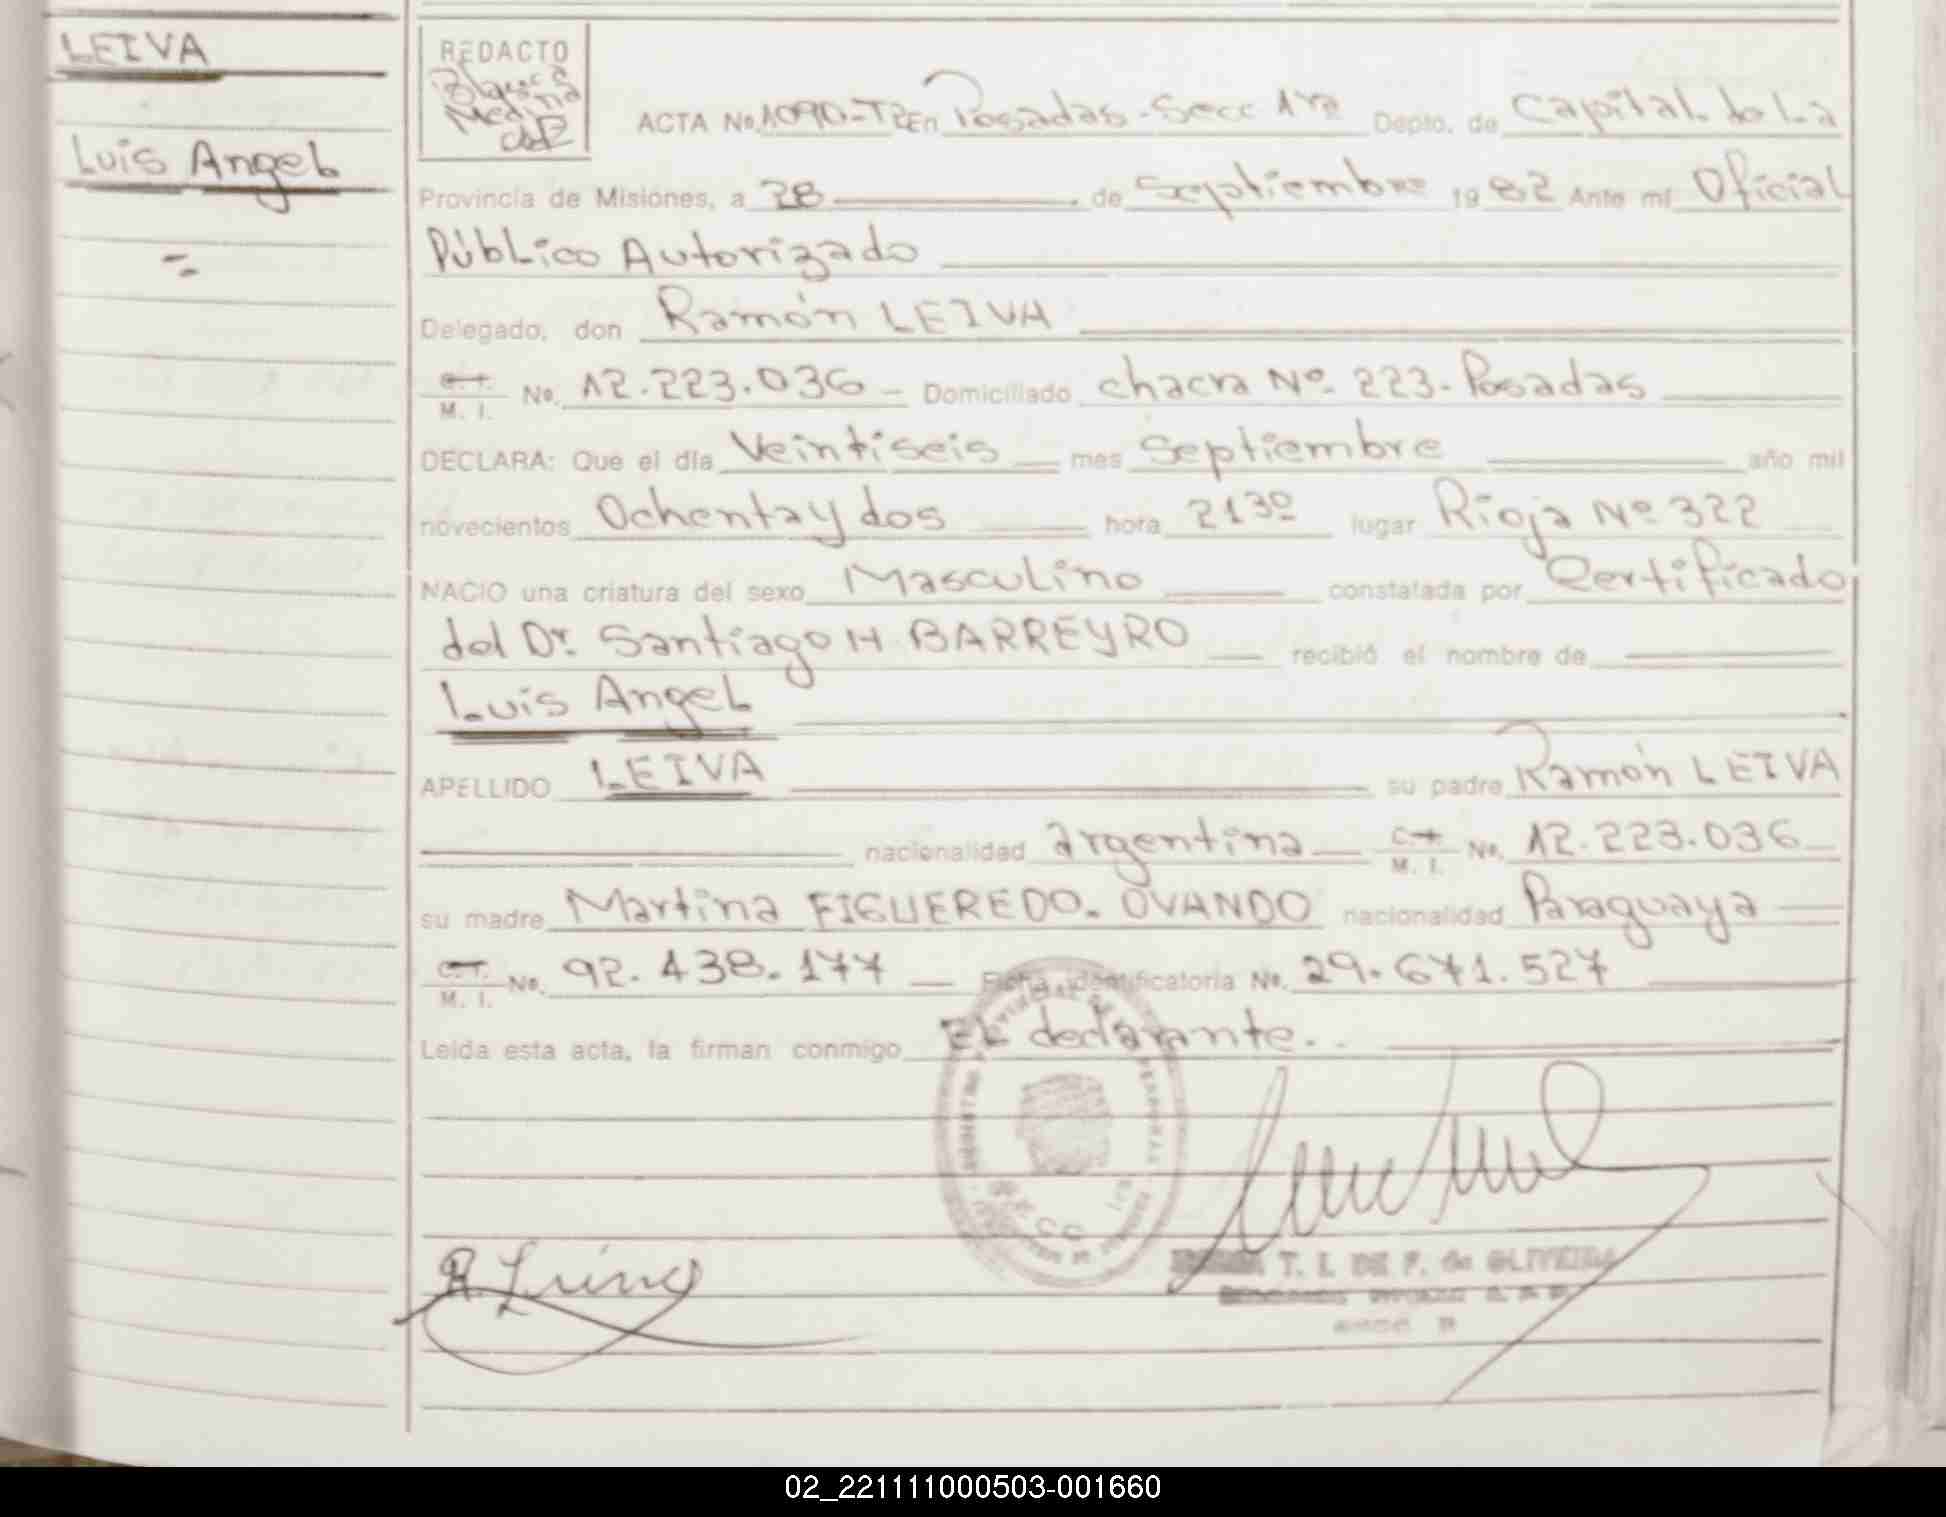 LEIVA
Luis Angel
REDACTO
Medina
ACTA No. 1090-T2 En Posadas-Secc 1ra Depto. de Capital de La
Provincia de Misiones, a 28 de Septiembre 1982 Ante mí Oficial
Público Autorizado
Delegado, don Ramón LEIVA
C.I. M. I. No. 12.223.036 - Domiciliado chacra Nº 223-Posadas
DECLARA: Que el día Veintiseis mes Septiembre año mil
novecientos Ochenta y dos hora 21 30 lugar Rioja Nº 322
NACIO una criatura del sexo Masculino constatada por Certificado
del Dr. Santiago H BARREYRO recibió el nombre de
Luis Angel
APELLIDO LEIVA su padre Ramón LEIVA
nacionalidad argentina C.I. M. I. No. 12.223.036
su madre Martina FIGUEREDO-OVANDO nacionalidad Paraguaya
C.I. M. I. No. 92.438.177 Ficha identificatoria No. 29.671.527
Leída esta acta, la firman conmigo El declarante.
SECC 1ra
T. I. DE F. de OLIVEIRA
02_221111000503-001660